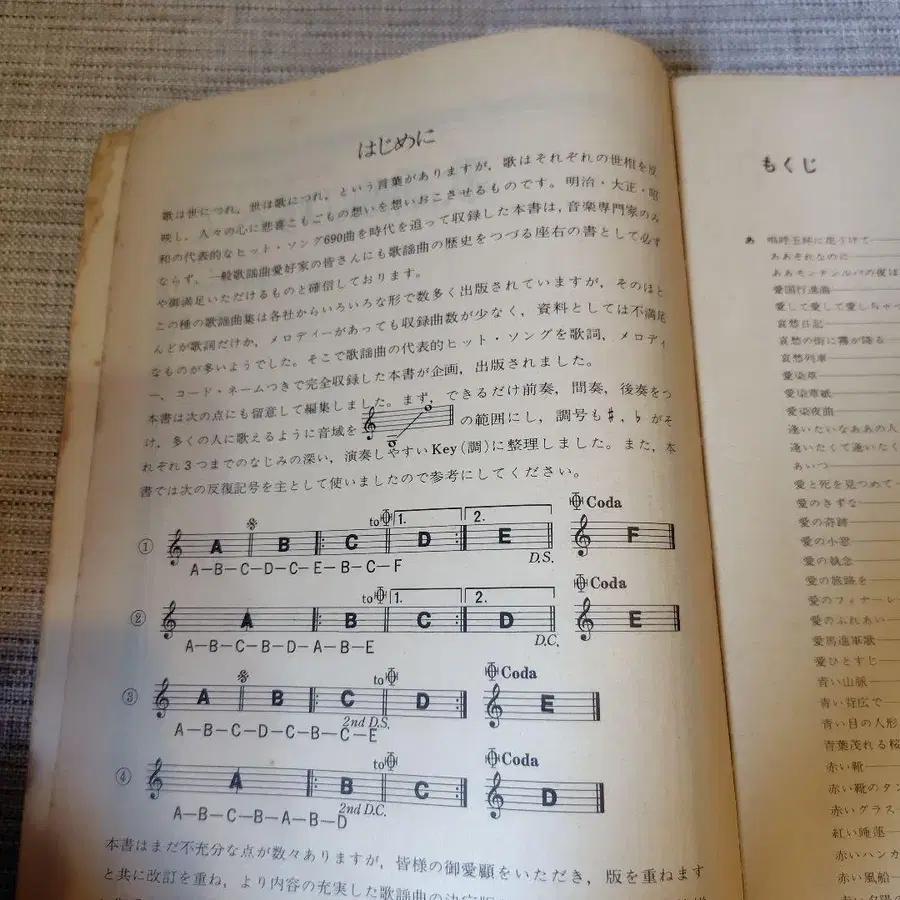 はじめに
歌は世につれ，世は歌につれ，という言葉がありますが，歌はそれぞれの世相を反
映し，人々の心に悲喜こもごもの想いを想いおこさせるものです。明治・大正・昭
和の代表的なヒット・ソング690曲を時代を追って収録した本書は，音楽専門家のみ
ならず，一般歌謡曲愛好家の皆さんにも歌謡曲の歴史をつづる座右の書として必ず
や御満足いただけるものと確信しております。
この種の歌謡曲集は各社からいろいろな形で数多く出版されていますが，そのほと
んどが歌詞だけか，メロディーがあっても収録曲数が少なく，資料としては不満足
なものが多いようでした。そこで歌謡曲の代表的ヒット・ソングを歌詞，メロディ
ー，コード・ネームつきで完全収録した本書が企画，出版されました。
本書は次の点にも留意して編集しました。まず，できるだけ前奏，間奏，後奏をつ
け，多くの人に歌えるように音域を の範囲にし，調号も♯，♭がそ
れぞれ3つまでのなじみの深い，演奏しやすいKey（調）に整理しました。また，本
書では次の反復記号を主として使いましたので参考にしてください。
to 1. 2. Coda
① A B C D E F
D.S.
A—B—C—D—C—E—B—C—F
to 1. 2. Coda
② A B C D E
D.C.
A—B—C—B—D—A—B—E
to Coda
③ A B C D E
2nd D.S.
A—B—C—D—C—B—C—E
to Coda
④ A B C D
2nd D.C.
A—B—C—B—A—B—D
本書はまだ不充分な点が数々ありますが，皆様の御愛顧をいただき，版を重ねます
と共に改訂を重ね，より内容の充実した歌謡曲の決定版
もくじ
あ 嗚呼玉杯に花うけて
ああそれなのに
ああモンテンルパの夜は
愛国行進曲
愛して愛して愛しちゃっ
哀愁日記
哀愁の街に霧が降る
哀愁列車
愛染草
愛染草紙
愛染夜曲
逢いたいなああの人
逢いたくて逢いたく
あいつ
愛と死を見つめて
愛のきずな
愛の奇跡
愛の小窓
愛の執念
愛の旅路を
愛のフィナーレ
愛のふれあい
愛馬進軍歌
愛ひとすじ
青い山脈
青い背広で
青い目の人形
青葉茂れる桜
赤い靴
赤い靴のタン
赤いグラス
紅い睡蓮
赤いハンカ
赤い風船
赤い夕陽の